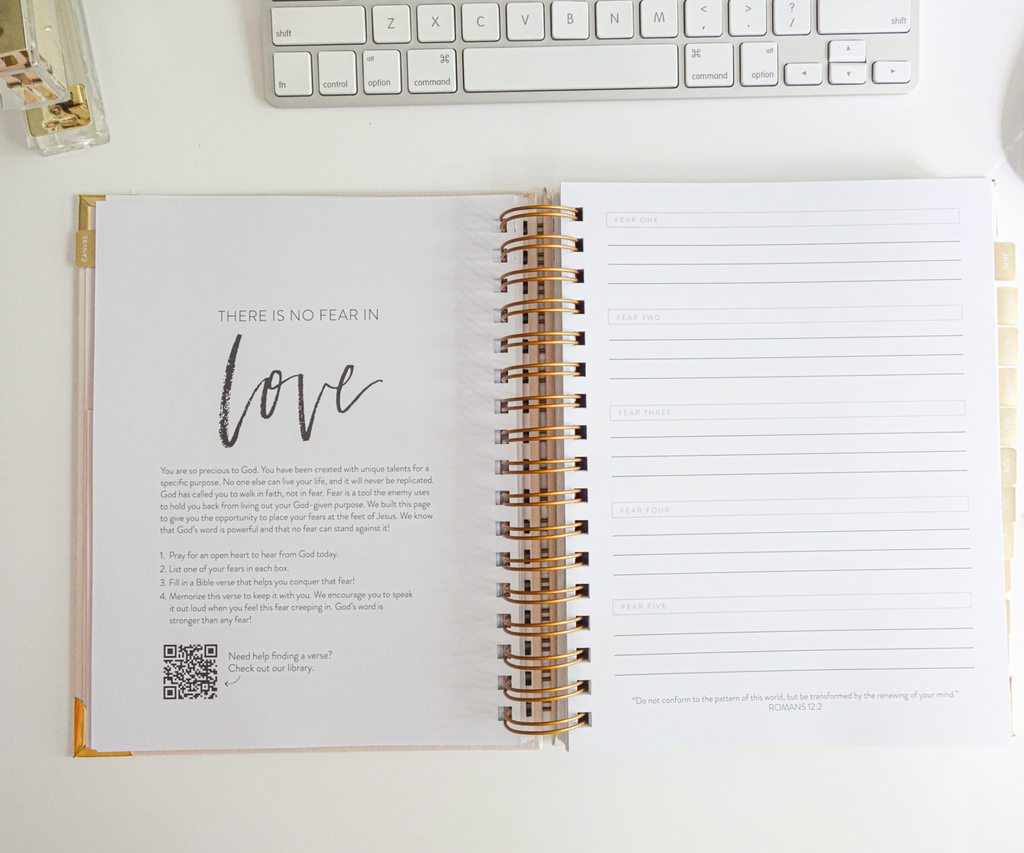 shift
Z X C V B N M < , > . ? /
shift
fn
control
alt
option
⌘
command
⌘
command
alt
option
CANVAS
THERE IS NO FEAR IN
love
You are so precious to God. You have been created with unique talents for a
specific purpose. No one else can live your life, and it will never be replicated.
God has called you to walk in faith, not in fear. Fear is a tool the enemy uses
to hold you back from living out your God-given purpose. We built this page
to give you the opportunity to place your fears at the feet of Jesus. We know
that God's word is powerful and that no fear can stand against it!
1. Pray for an open heart to hear from God today.
2. List one of your fears in each box.
3. Fill in a Bible verse that helps you conquer that fear!
4. Memorize this verse to keep it with you. We encourage you to speak
it out loud when you feel this fear creeping in. God's word is
stronger than any fear!
Need help finding a verse?
Check out our library.
FEAR ONE
FEAR TWO
FEAR THREE
FEAR FOUR
FEAR FIVE
"Do not conform to the pattern of this world, but be transformed by the renewing of your mind."
ROMANS 12:2
JAN